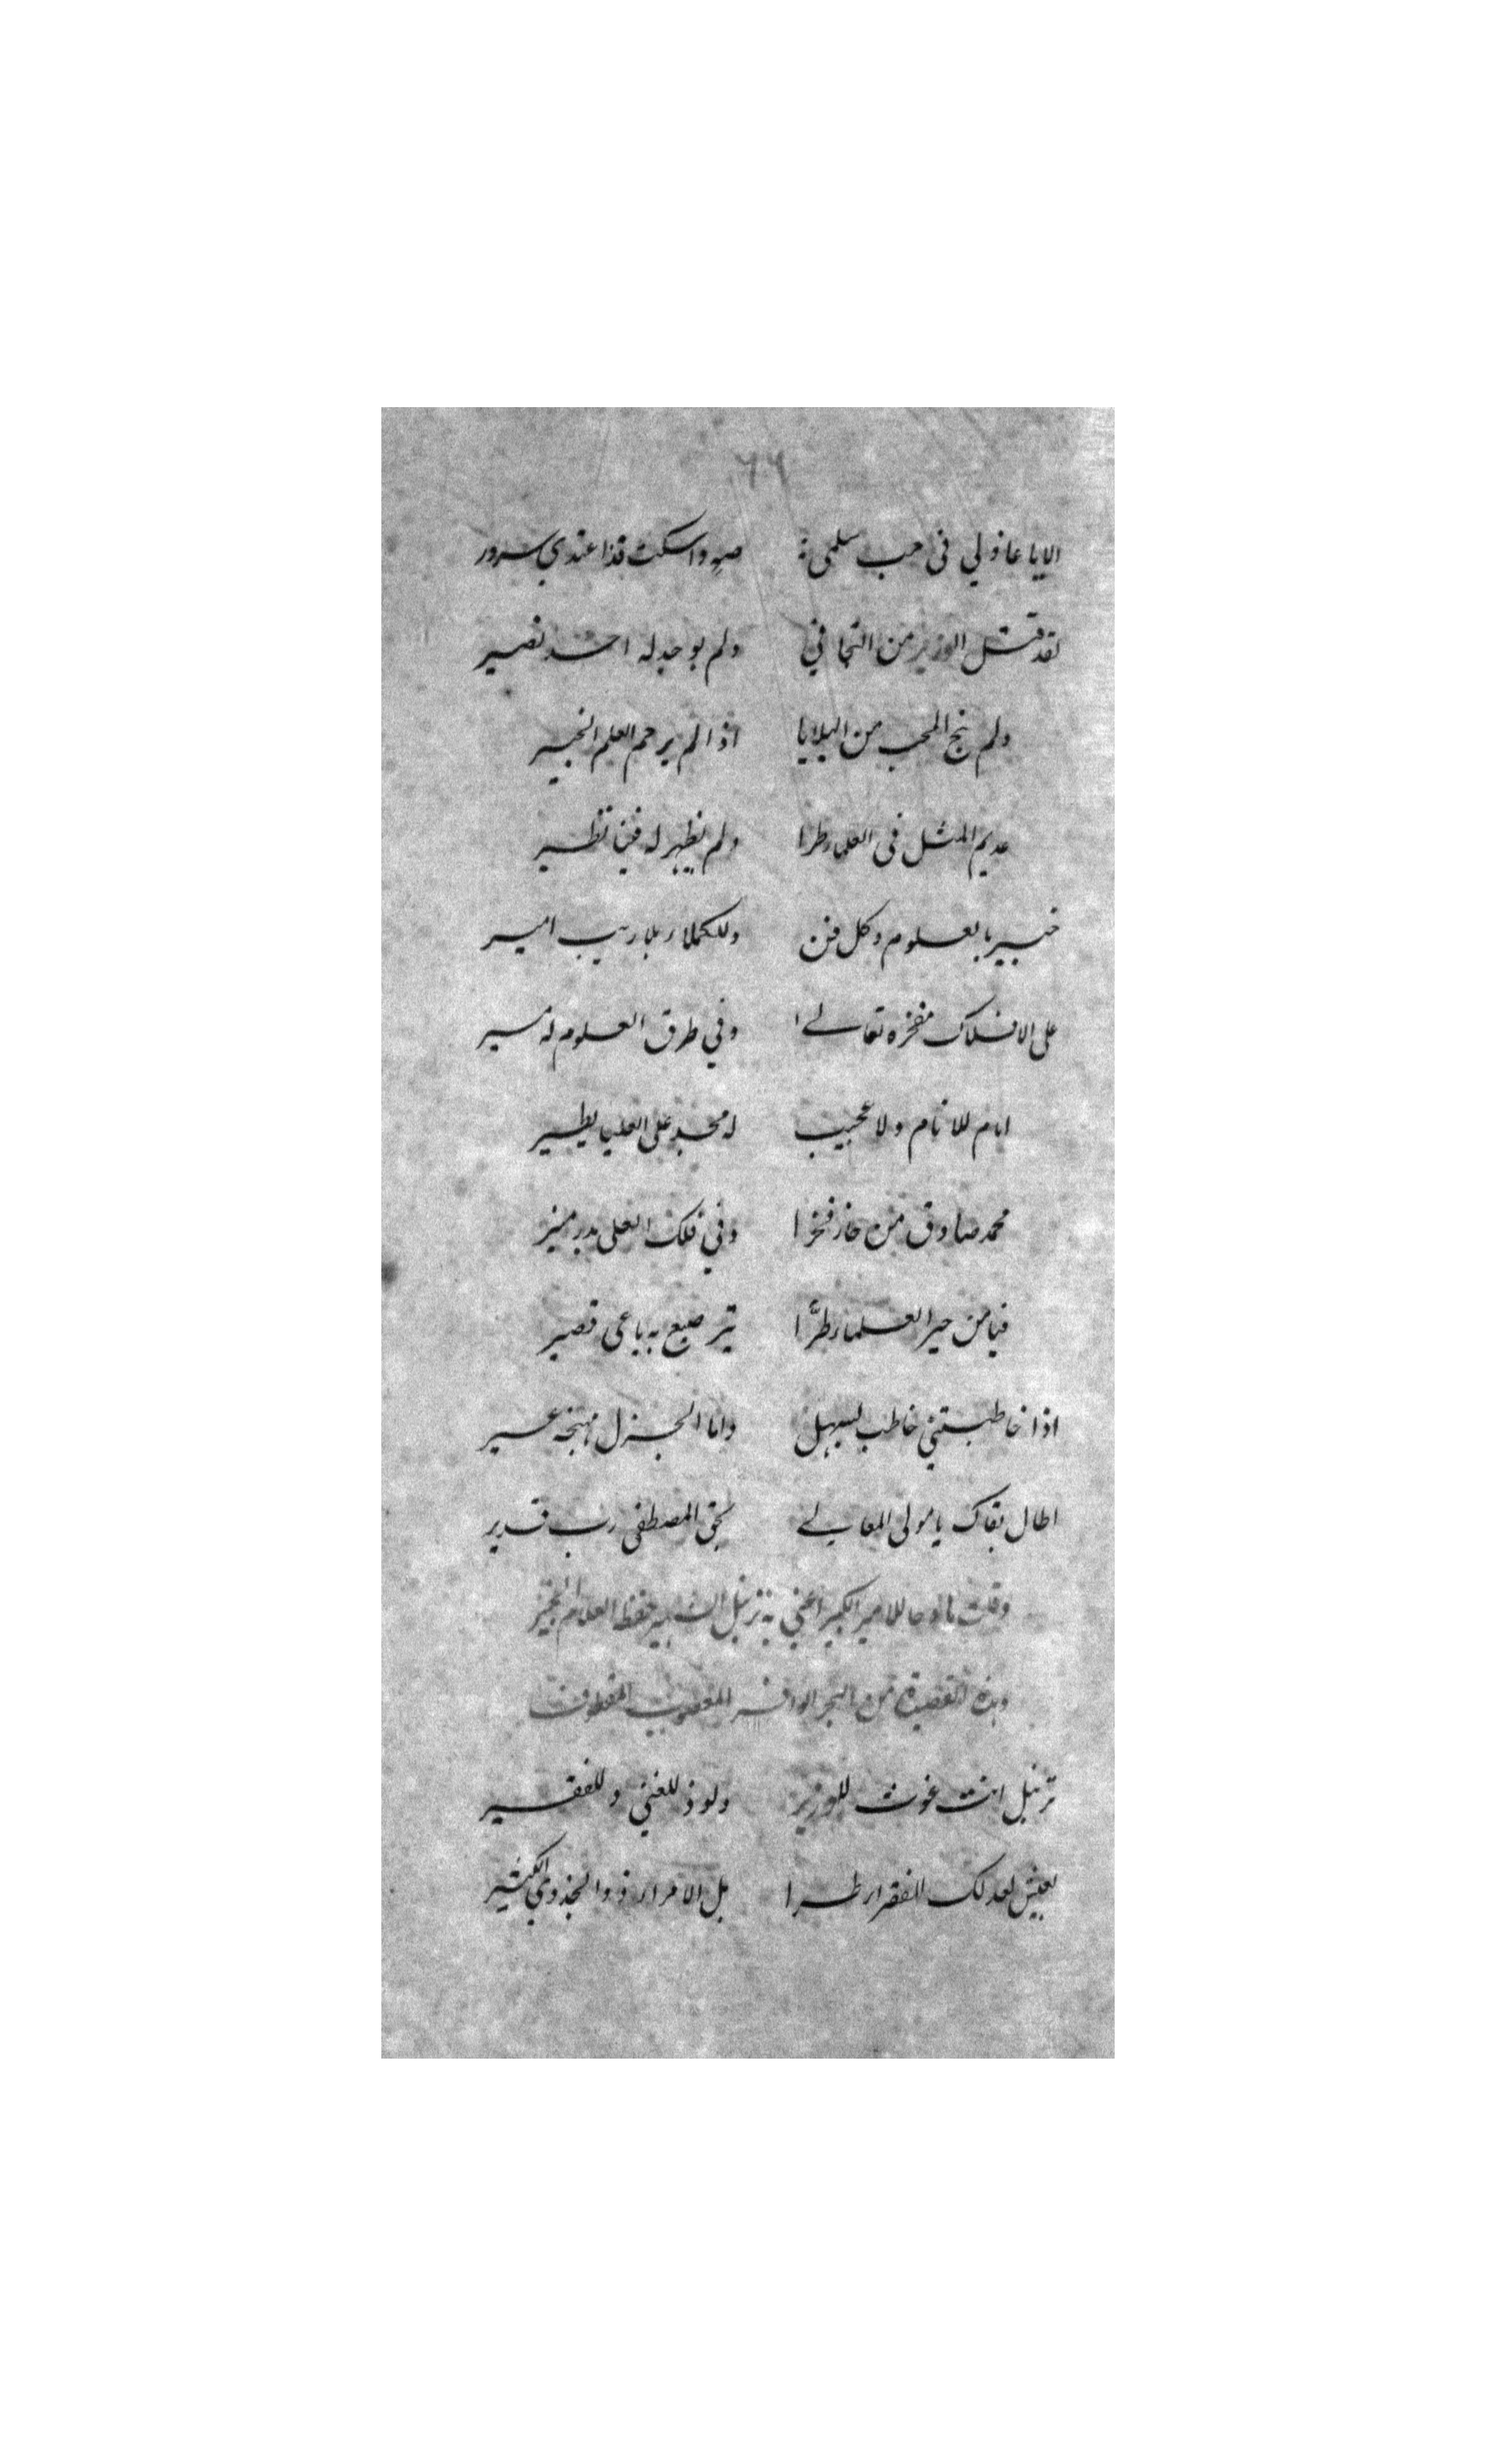 ٦٦
الايا عاذولي فى حب سلمى صه واسكت فذا عندي سرور
لقد قتل الوزير من التجافي ولم يوجد له احد نصير
ولم ينج المحب من البلايا اذا لم يرحم العلم الخبير
عديم المثل فى العلماء طرا ولم يظهر له فينا نظير
خبير بالعلوم وكل فن وللكملاء بلا ريب امير
على الافلاك مفخره تعالى وفي طرق العلوم له مسير
امام للانام ولا عجيب له مجد على العليا يطير
محمد صادق من حاز فخرا وفي فلك العلى بدر منير
فيامن حير العلماء طرًّا صبع به باعى قصير
اذا خاطبتني خاطب بسهل واما الجزل منهجه عسير
اطال بقاك يا مولى المعالي بحق المصطفى رب قدير
وقلت مادحا للامير الكبير اعني به ترنبل الشهير حفظه العلام الخبير
وهذه القصيدة من البحر الوافر المعصوب المقطوف
ترنبل انت غوث للوزير ولوذ للغني وللفقير
يعيش بعدلك الفقراء طرا بل الامراء ذوا الجذوي الكثير